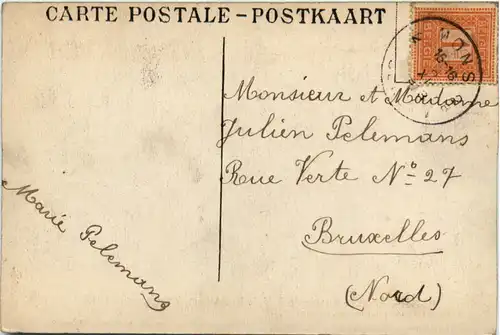 CARTE POSTALE - POSTKAART
MONS
15-16
Monsieur et Madame
Julien Pelemans
Rue Verte Nº 27
Bruxelles
(Nord)
Marie Pelemans